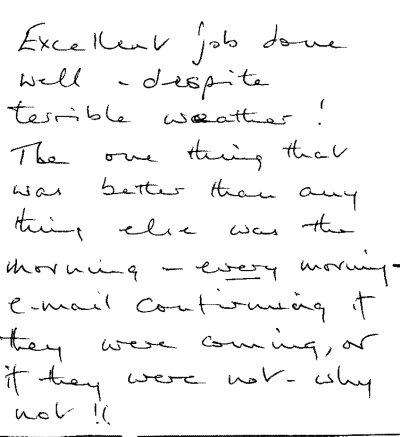 Excellent job done
well - despite
terrible weather!
The one thing that
was better than any
thing else was the
morning - every morning -
e-mail confirming if
they were coming, or
if they were not - why
not!!